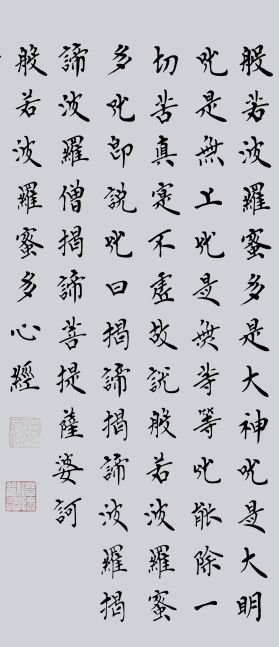 般若波羅蜜多是大神呪是大明
呪是無上呪是無等等呪能除一
切苦真實不虛故說般若波羅蜜
多呪即說呪曰揭諦揭諦波羅揭
諦波羅僧揭諦菩提薩婆訶
般若波羅蜜多心經